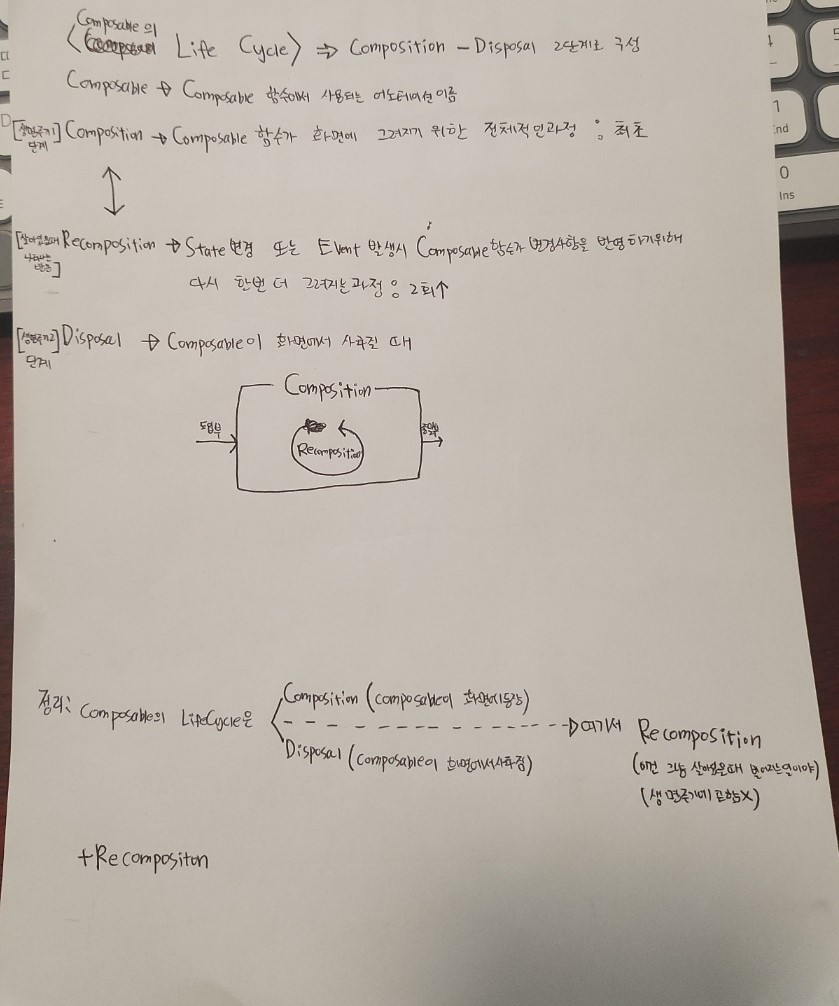 Composable의
〈 Life Cycle〉 ⇒ Composition - Disposal 2단계로 구성
Composable → Composable 함수에서 사용되는 어노테이션이름
[생명주기1단계] Composition → Composable 함수가 화면에 그려지기 위한 전체적인과정 : 최초
↕
[살아있을때 나타나는] Recomposition → State변경 또는 Event 발생시 Composable함수가 변경사항을 반영하기위해
다시 한번 더 그려지는과정 : 2회↑
[생명주기2단계] Disposal → Composable이 화면에서 사라질 때
Composition
도입부
Recomposition
정리: Composable의 LifeCycle은
Composition (composable이 화면에등장)
→ 여기서 Recomposition
Disposal (composable이 화면에서사라짐)
(이건 그냥 살아있을때 벌어지는일이야)
(생명주기에 포함X)
+Recompositon